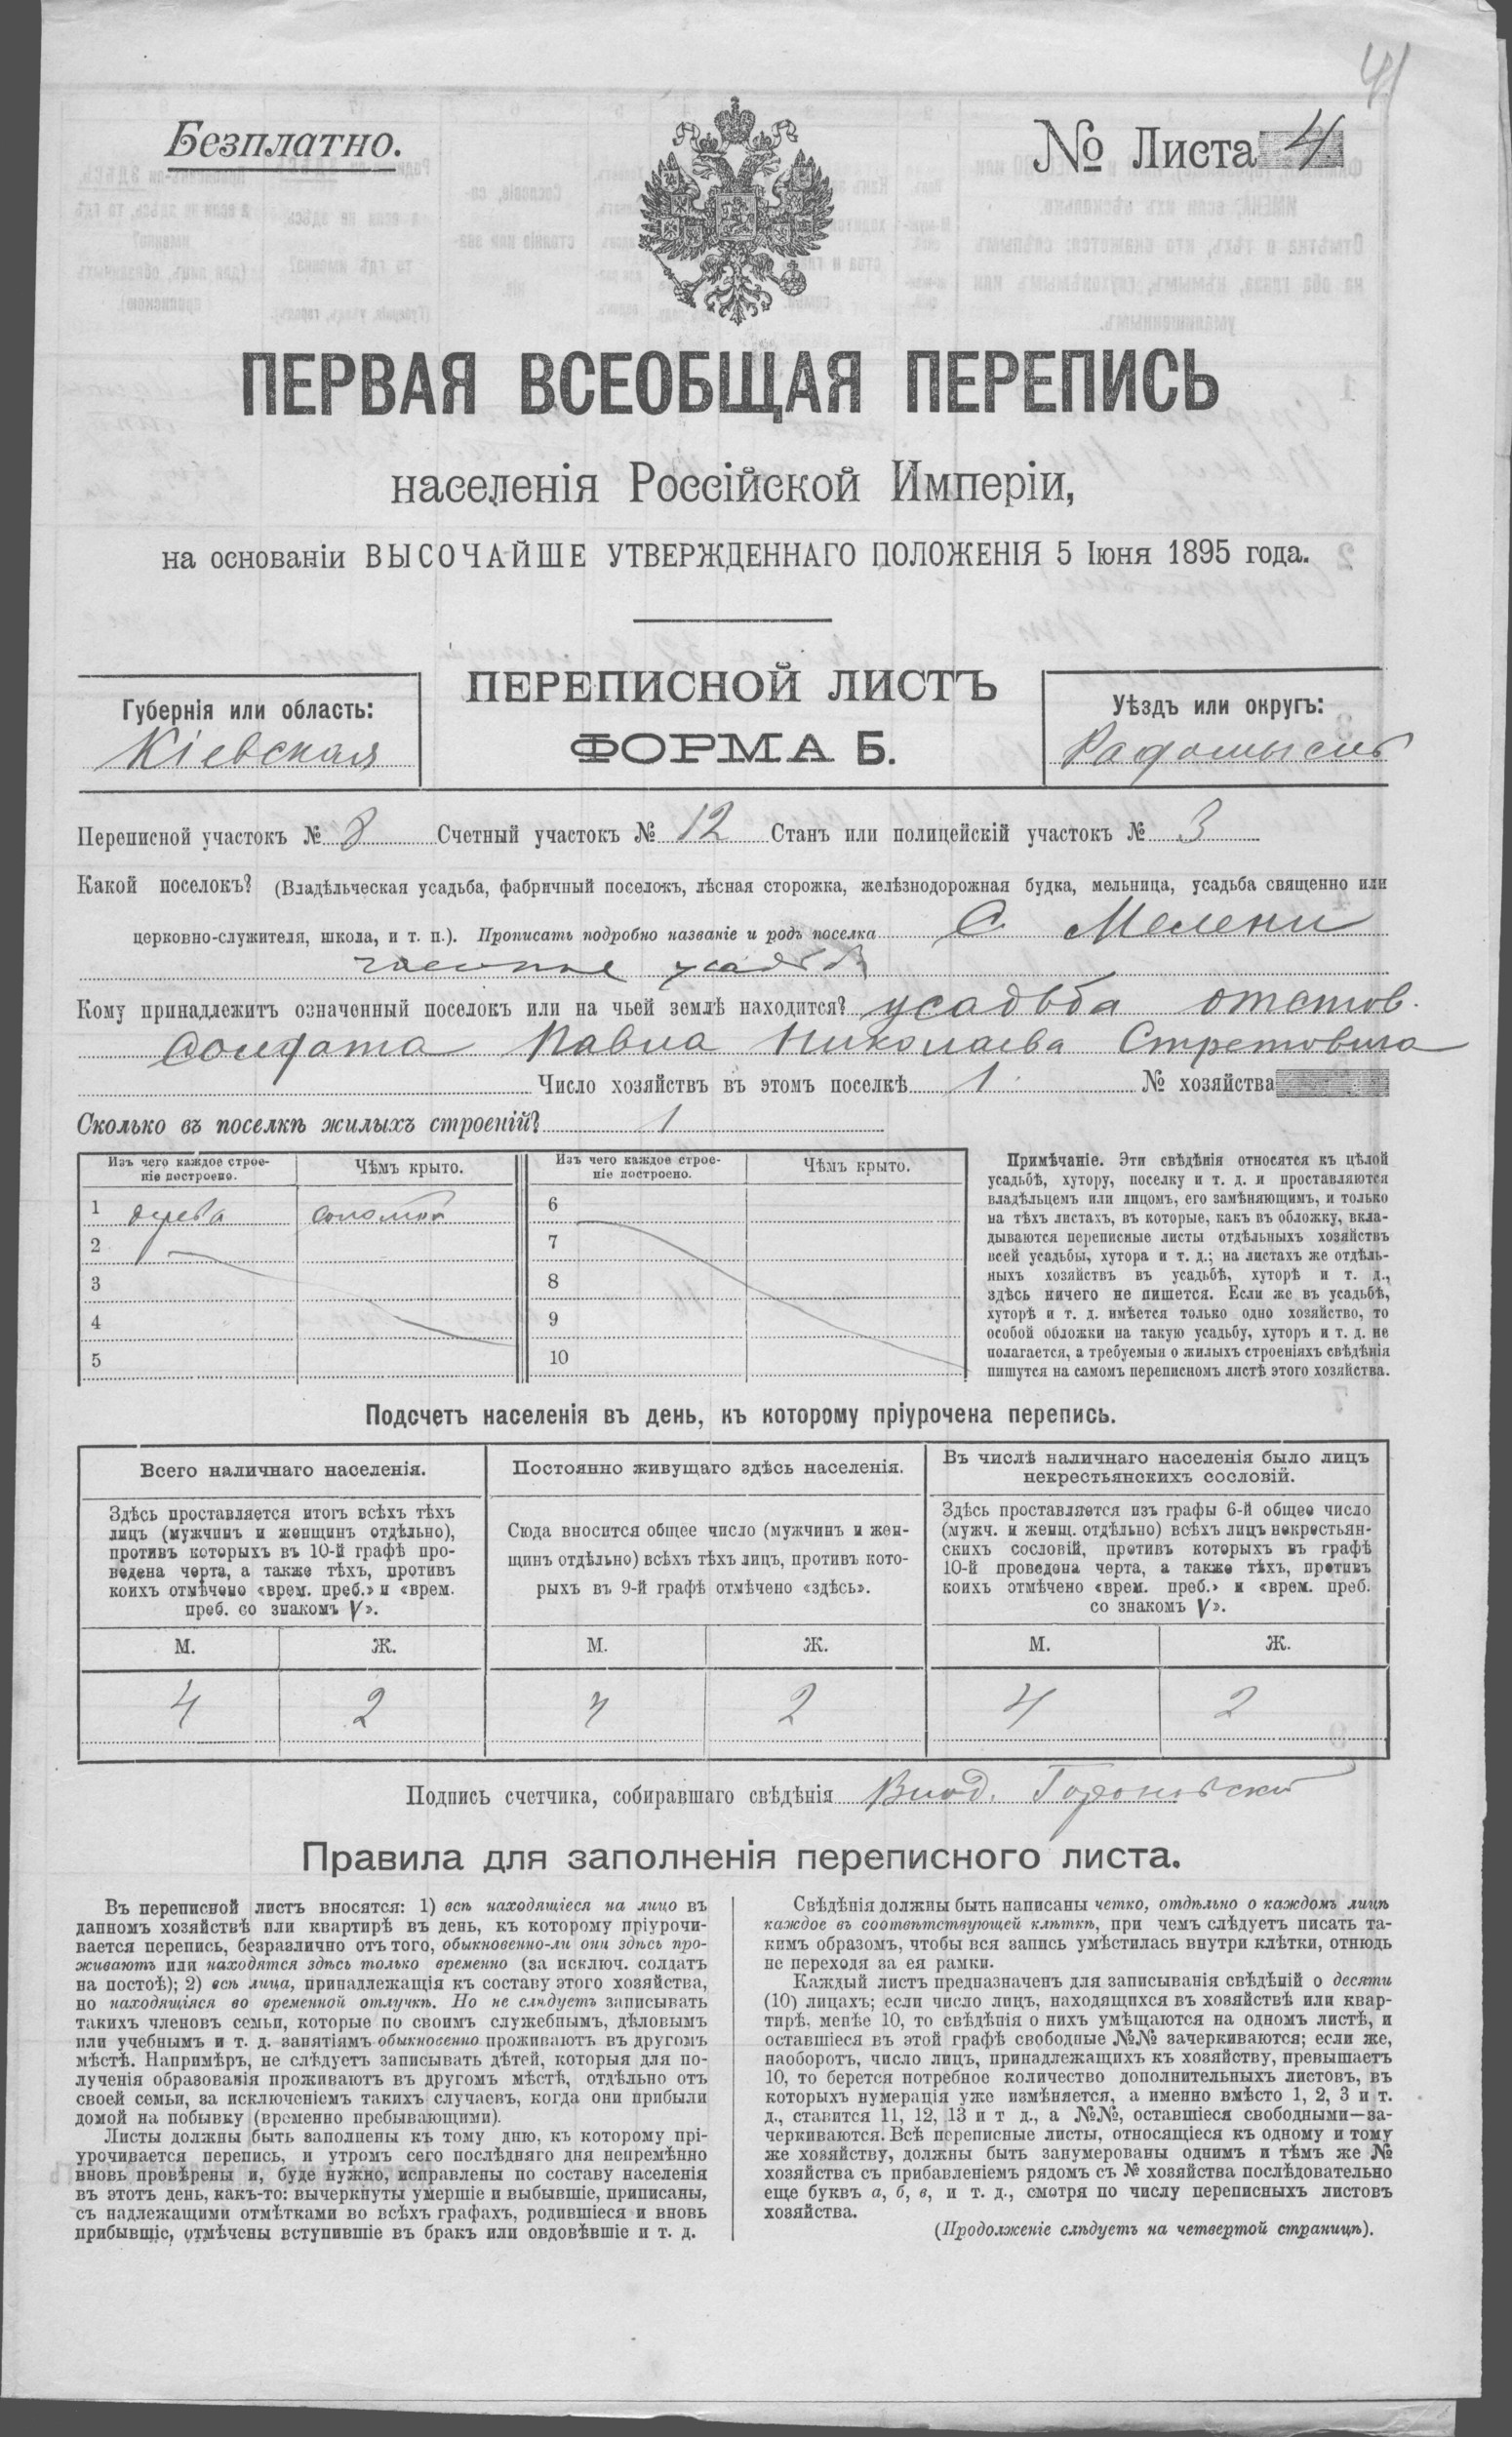 41
Безплатно.
№ Листа 4
ПЕРВАЯ ВСЕОБЩАЯ ПЕРЕПИСЬ
населенія Россійской Имперіи,
на основаніи ВЫСОЧАЙШЕ УТВЕРЖДЕННАГО ПОЛОЖЕНІЯ 5 Іюня 1895 года.
ПЕРЕПИСНОЙ ЛИСТЪ
ФОРМА Б.
Губернія или область:
Кіевская
Уѣздъ или округъ:
Радомысль
Переписной участокъ № 8 Счетный участокъ № 12 Станъ или полицейскій участокъ № 3
Какой поселокъ? (Владѣльческая усадьба, фабричный поселокъ, лѣсная сторожка, желѣзнодорожная будка, мельница, усадьба священно или
церковно-служителя, школа, и т. п.). Прописать подробно названіе и родъ поселка С. Мелени
усадьба
Кому принадлежитъ означенный поселокъ или на чьей землѣ находится? усадьба отстов.
Солдата Павла Николаева Стретовича
Число хозяйствъ въ этомъ поселкѣ 1 № хозяйства
Сколько въ поселкѣ жилыхъ строеній? 1
Изъ чего каждое строе-
ніе построено.
Чѣмъ крыто.
Изъ чего каждое строе-
ніе построено.
Чѣмъ крыто.
1 дерева соломой
2
3
4
5
6
7
8
9
10
Примѣчаніе. Эти свѣдѣнія относятся къ цѣлой
усадьбѣ, хутору, поселку и т. д. и проставляются
владѣльцемъ или лицомъ, его замѣняющимъ, и только
на тѣхъ листахъ, въ которые, какъ въ обложку, вкла-
дываются переписные листы отдѣльныхъ хозяйствъ
всей усадьбы, хутора и т. д.; на листахъ же отдѣль-
ныхъ хозяйствъ въ усадьбѣ, хуторѣ и т. д.,
здѣсь ничего не пишется. Если же въ усадьбѣ,
хуторѣ и т. д. имѣется только одно хозяйство, то
особой обложки на такую усадьбу, хуторъ и т. д. не
полагается, а требуемыя о жилыхъ строеніяхъ свѣдѣнія
пишутся на самомъ переписномъ листѣ этого хозяйства.
Подсчетъ населенія въ день, къ которому пріурочена перепись.
Всего наличнаго населенія.
Здѣсь проставляется итогъ всѣхъ тѣхъ
лицъ (мужчинъ и женщинъ отдѣльно),
противъ которыхъ въ 10-й графѣ про-
ведена черта, а также тѣхъ, противъ
коихъ отмѣчено «врем. преб.» и «врем.
преб. со знакомъ V».
М. Ж.
4 2
Постоянно живущаго здѣсь населенія.
Сюда вносится общее число (мужчинъ и жен-
щинъ отдѣльно) всѣхъ тѣхъ лицъ, противъ кото-
рыхъ въ 9-й графѣ отмѣчено «здѣсь».
М. Ж.
4 2
Въ числѣ наличнаго населенія было лицъ
некрестьянскихъ сословій.
Здѣсь проставляется изъ графы 6-й общее число
(мужч. и женщ. отдѣльно) всѣхъ лицъ некрестьян-
скихъ сословій, противъ которыхъ въ графѣ
10-й проведена черта, а также тѣхъ, противъ
коихъ отмѣчено «врем. преб.» и «врем. преб.
со знакомъ V».
М. Ж.
4 2
Подпись счетчика, собиравшаго свѣдѣнія Влад.
Правила для заполненія переписного листа.
Въ переписной листъ вносятся: 1) всѣ находящіеся на лицо въ
данномъ хозяйствѣ или квартирѣ въ день, къ которому пріурочи-
вается перепись, безразлично отъ того, обыкновенно-ли они здѣсь про-
живаютъ или находятся здѣсь только временно (за исключ. солдатъ
на постоѣ); 2) всѣ лица, принадлежащія къ составу этого хозяйства,
но находящіяся во временной отлучкѣ. Но не слѣдуетъ записывать
такихъ членовъ семьи, которые по своимъ служебнымъ, дѣловымъ
или учебнымъ и т. д. занятіямъ обыкновенно проживаютъ въ другомъ
мѣстѣ. Напримѣръ, не слѣдуетъ записывать дѣтей, которыя для по-
лученія образованія проживаютъ въ другомъ мѣстѣ, отдѣльно отъ
своей семьи, за исключеніемъ такихъ случаевъ, когда они прибыли
домой на побывку (временно пребывающими).
Листы должны быть заполнены къ тому дню, къ которому прі-
урочивается перепись, и утромъ сего послѣдняго дня непремѣнно
вновь провѣрены и, буде нужно, исправлены по составу населенія
въ этотъ день, какъ-то: вычеркнуты умершіе и выбывшіе, приписаны,
съ надлежащими отмѣтками во всѣхъ графахъ, родившіеся и вновь
прибывшіе, отмѣчены вступившіе въ бракъ или овдовѣвшіе и т. д.
Свѣдѣнія должны быть написаны четко, отдѣльно о каждомъ лицѣ
каждое въ соотвѣтствующей клѣткѣ, при чемъ слѣдуетъ писать та-
кимъ образомъ, чтобы вся запись умѣстилась внутри клѣтки, отнюдь
не переходя за ея рамки.
Каждый листъ предназначенъ для записыванія свѣдѣній о десяти
(10) лицахъ; если число лицъ, находящихся въ хозяйствѣ или квар-
тирѣ, менѣе 10, то свѣдѣнія о нихъ умѣщаются на одномъ листѣ, и
оставшіеся въ этой графѣ свободные №№ зачеркиваются; если же,
наоборотъ, число лицъ, принадлежащихъ къ хозяйству, превышаетъ
10, то берется потребное количество дополнительныхъ листовъ, въ
которыхъ нумерація уже измѣняется, а именно вмѣсто 1, 2, 3 и т.
д., ставится 11, 12, 13 и т д., а №№, оставшіеся свободными—за-
черкиваются. Всѣ переписные листы, относящіеся къ одному и тому
же хозяйству, должны быть занумерованы однимъ и тѣмъ же №
хозяйства съ прибавленіемъ рядомъ съ № хозяйства послѣдовательно
еще буквъ а, б, в, и т. д., смотря по числу переписныхъ листовъ
хозяйства.
(Продолженіе слѣдуетъ на четвертой страницѣ).